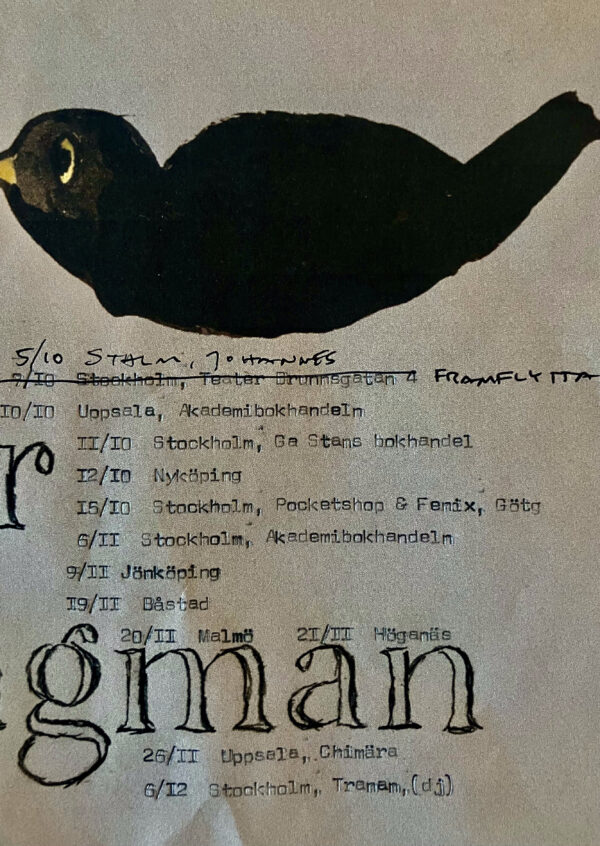 5/10 STHLM, JOHANNES
9/10 Stockholm, Teater Brunnsgatan 4 FRAMFLYTTA
10/10 Uppsala, Akademibokhandeln
r
11/10 Stockholm, Ga Stans bokhandel
12/10 Nyköping
15/10 Stockholm, Pocketshop & Femix, Götg
6/11 Stockholm, Akademibokhandeln
9/11 Jönköping
19/11 Båstad
20/11 Malmö 21/11 Höganäs
gman
26/11 Uppsala, Chimära
6/12 Stockholm, Tranan, (dj)